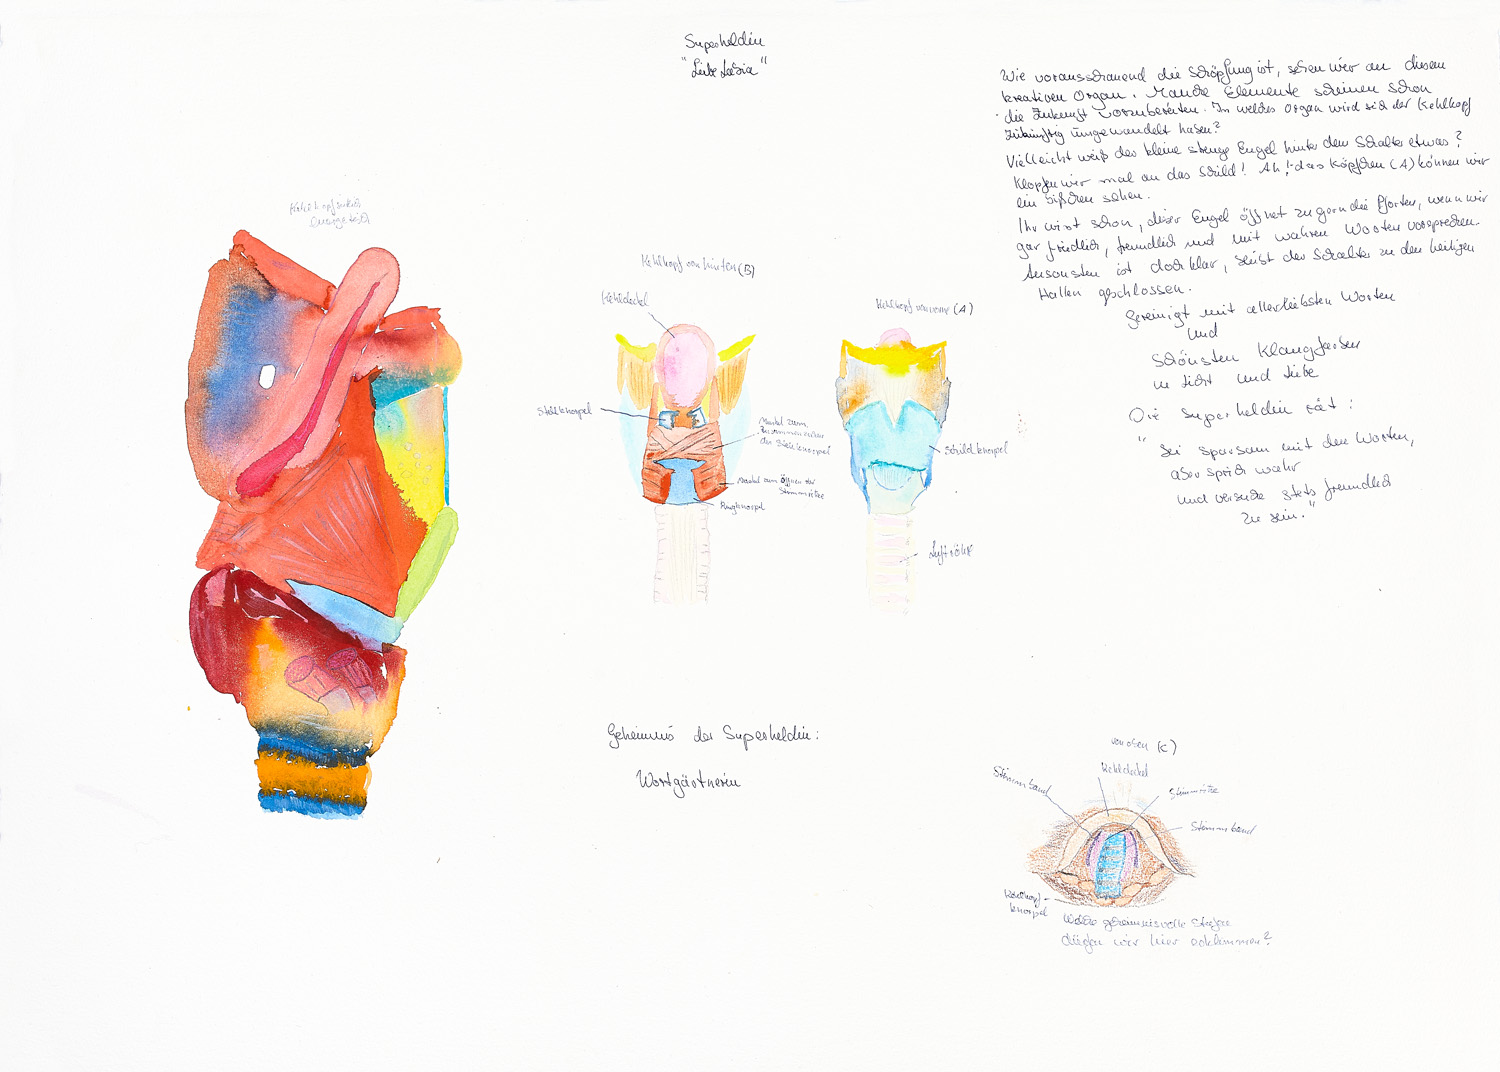 Superheldin
"Liebe Ladia"
Wie vorausschauend die Schöpfung ist, sehen wir an diesem
kreativen Organ. Manche Elemente scheinen schon
die Zukunft vorzubereiten. In welches Organ wird sich der Kehlkopf
zukünftig umgewandelt haben?
Vielleicht weiß der kleine strenge Engel hinter dem Schalter etwas?
Klopfen wir mal an das Schild! Ah! das Köpfchen (A) können wir
ein bißchen sehen.
Ihr wisst schon, dieser Engel öffnet zu gern die Pforten, wenn wir
gar friedlich, freundlich und mit wahren Worten vorsprechen.
Ansonsten ist doch klar, bleibt der Schalter zu den heiligen
Hallen geschlossen.
Gereinigt mit allerliebsten Worten
und
schönsten Klangfarben
in Licht und Liebe
Die Superheldin rät:
"Sei sparsam mit den Worten,
aber sprich wahr
und versuche stets freundlich
zu sein."
Kehlkopf von hinten (B)
Kehldeckel
Stellknorpel
Muskel zum
Zusammenziehen
der Stellknorpel
Muskel zum Öffnen der
Stimmritze
Ringknorpel
Kehlkopf von vorne (A)
Schildknorpel
Luftröhre
Geheimnis der Superheldin:
Wortgärtnerin
von oben (C)
Kehldeckel
Stimmband
Stimmritze
Stimmband
Kehlkopf-
knorpel
Welche geheimnisvolle Stufen
dürfen wir hier erklimmen?